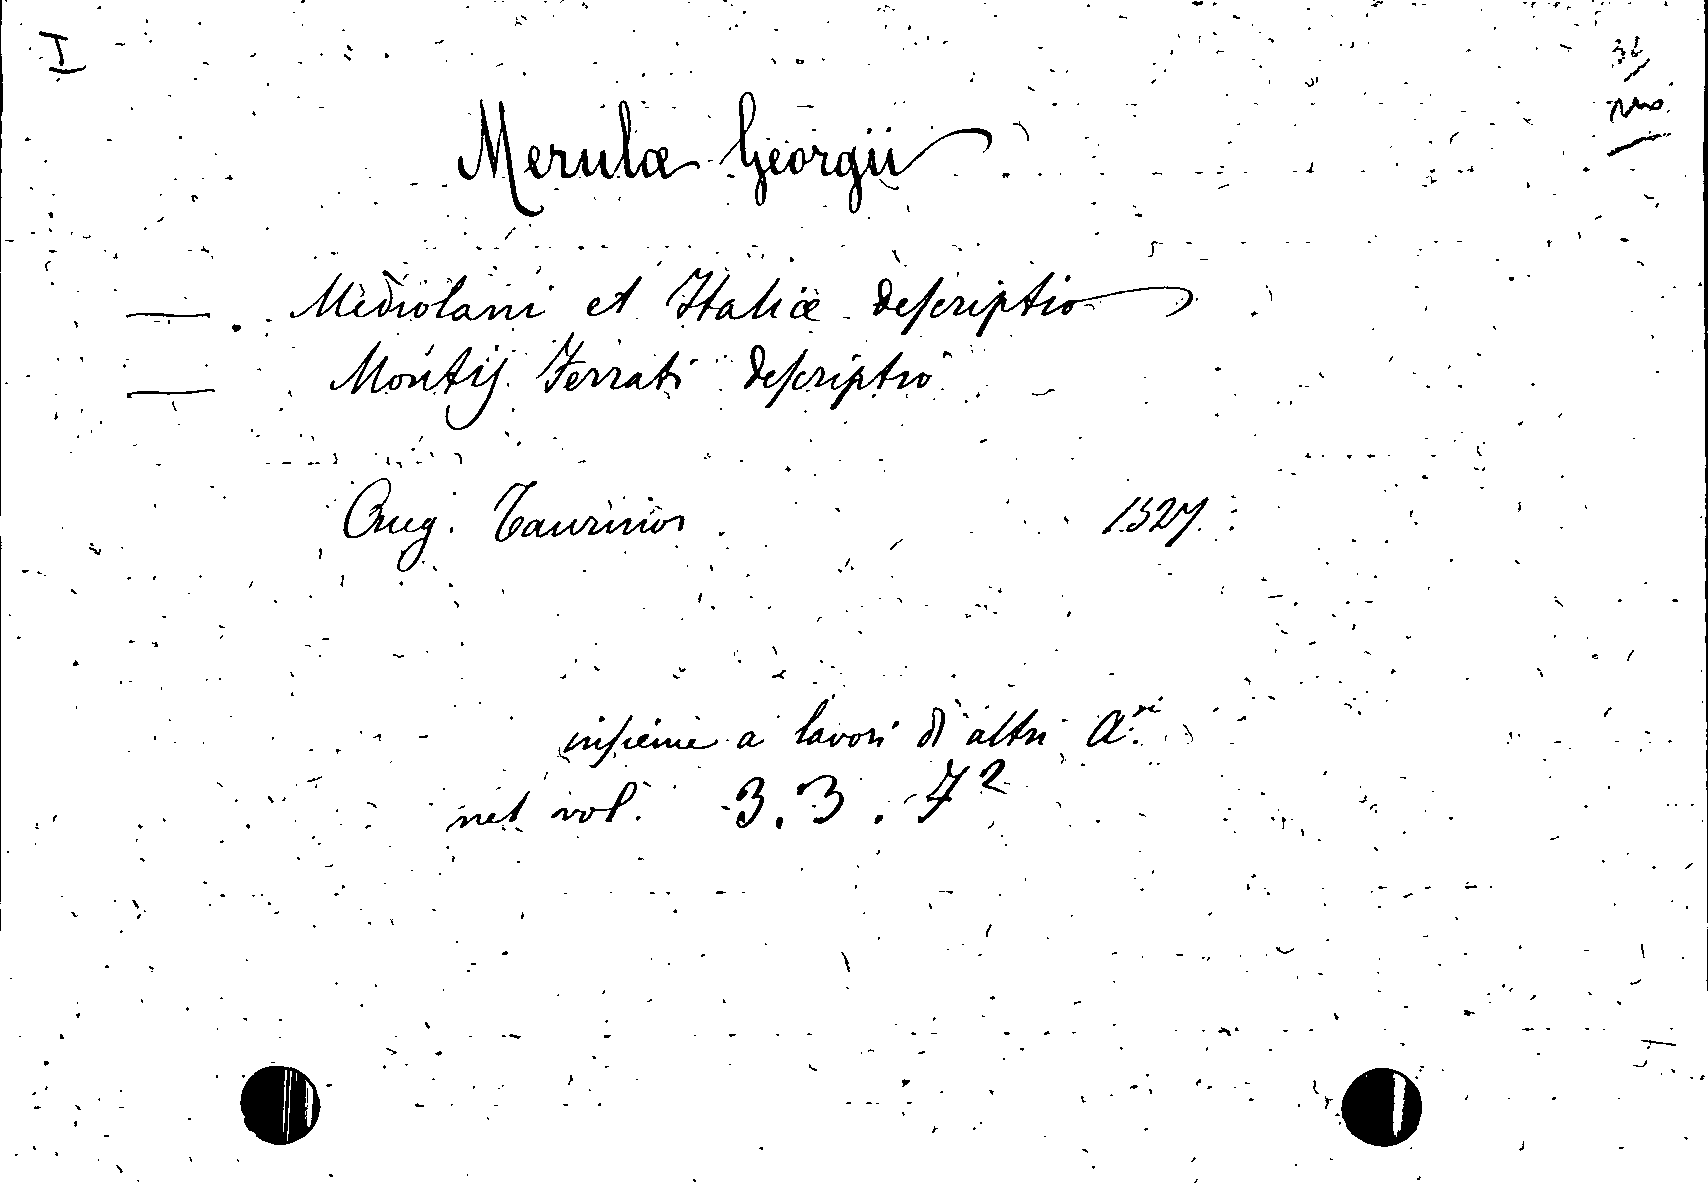 I
Merulæ Georgii
— Mediolani et Italiæ deſcriptio
— Montiſ Ferrati deſcriptio
Aug. Taurinor 1527.
inſieme a lavori di altri A.ri
nel vol. 3. 3. 7²